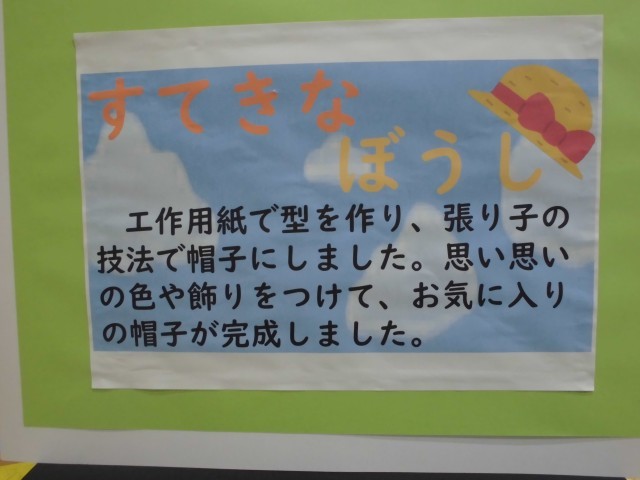 すてきな
ぼうし
工作用紙で型を作り、張り子の
技法で帽子にしました。思い思い
の色や飾りをつけて、お気に入り
の帽子が完成しました。